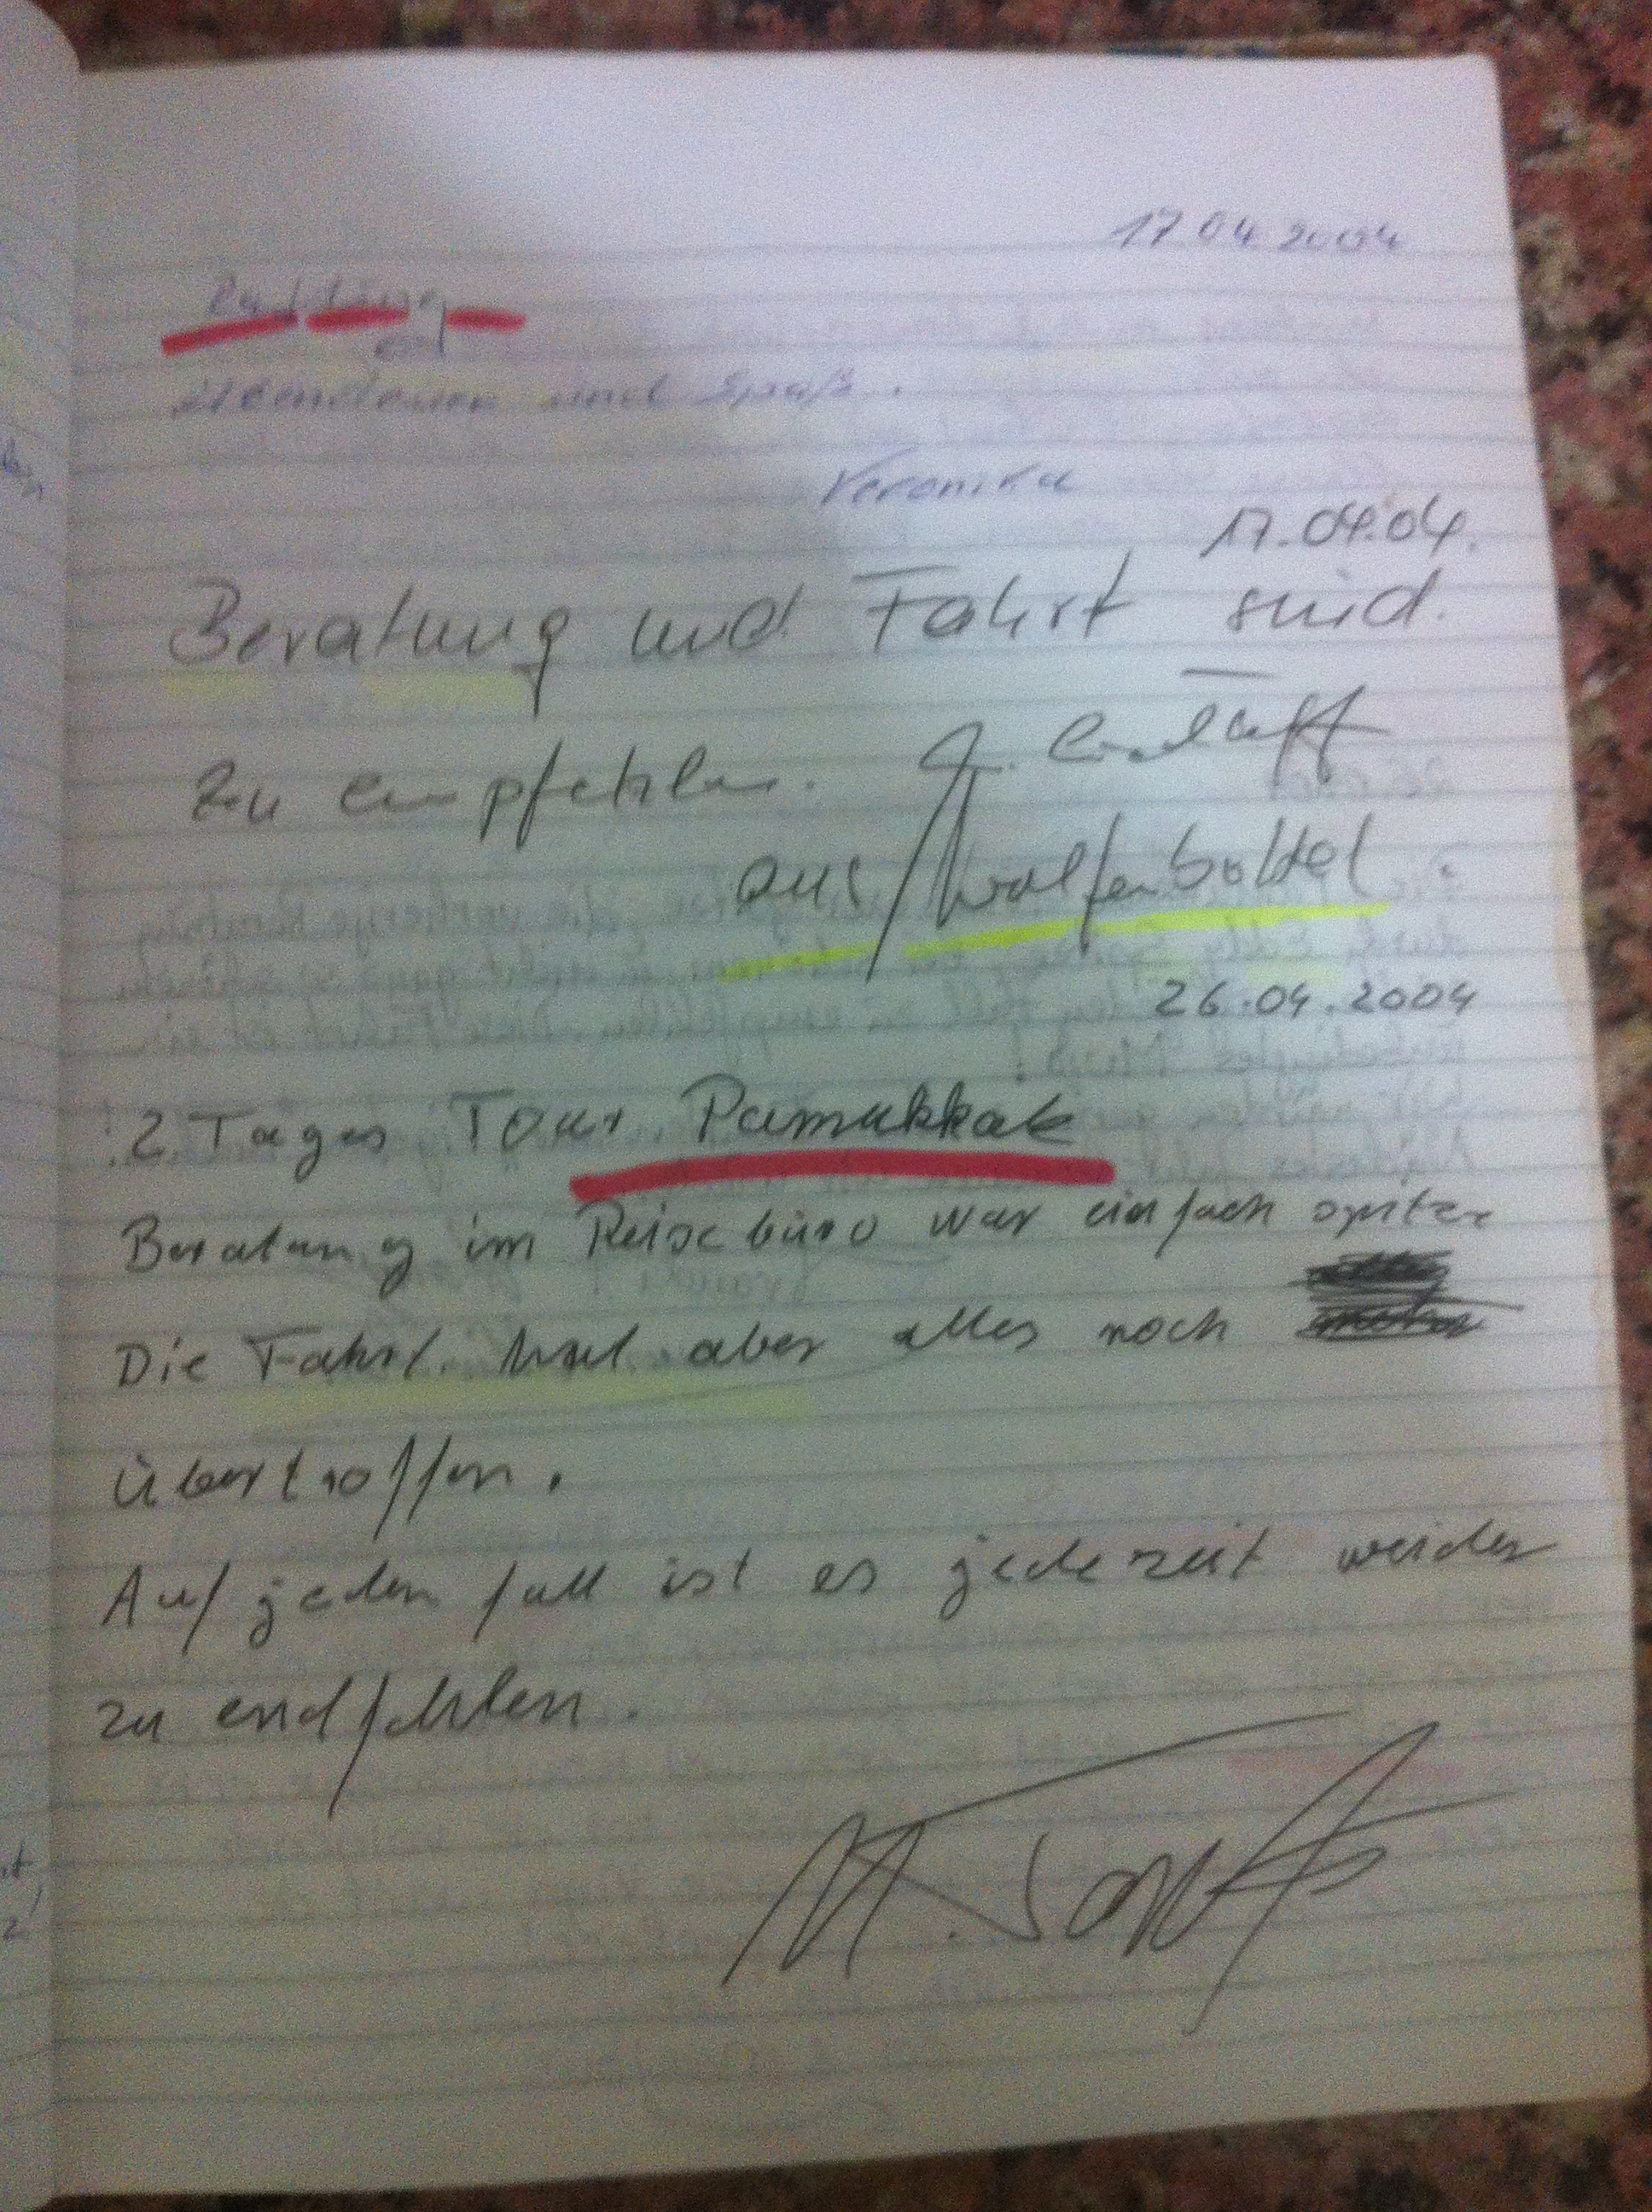 17 04 2004
Abendeuer und Spaß.
Veronika
17.04.04.
Beratung und Fahrt sind
zu empfehlen.
aus Wolfenbüttel.
26.04.2004
2 Tages Tour Pamukkale
Beratung im Reisebüro war einfach spitze
Die Fahrt hat aber alles noch
übertroffen.
Auf jeden fall ist es jederzeit weider
zu endfehlen.